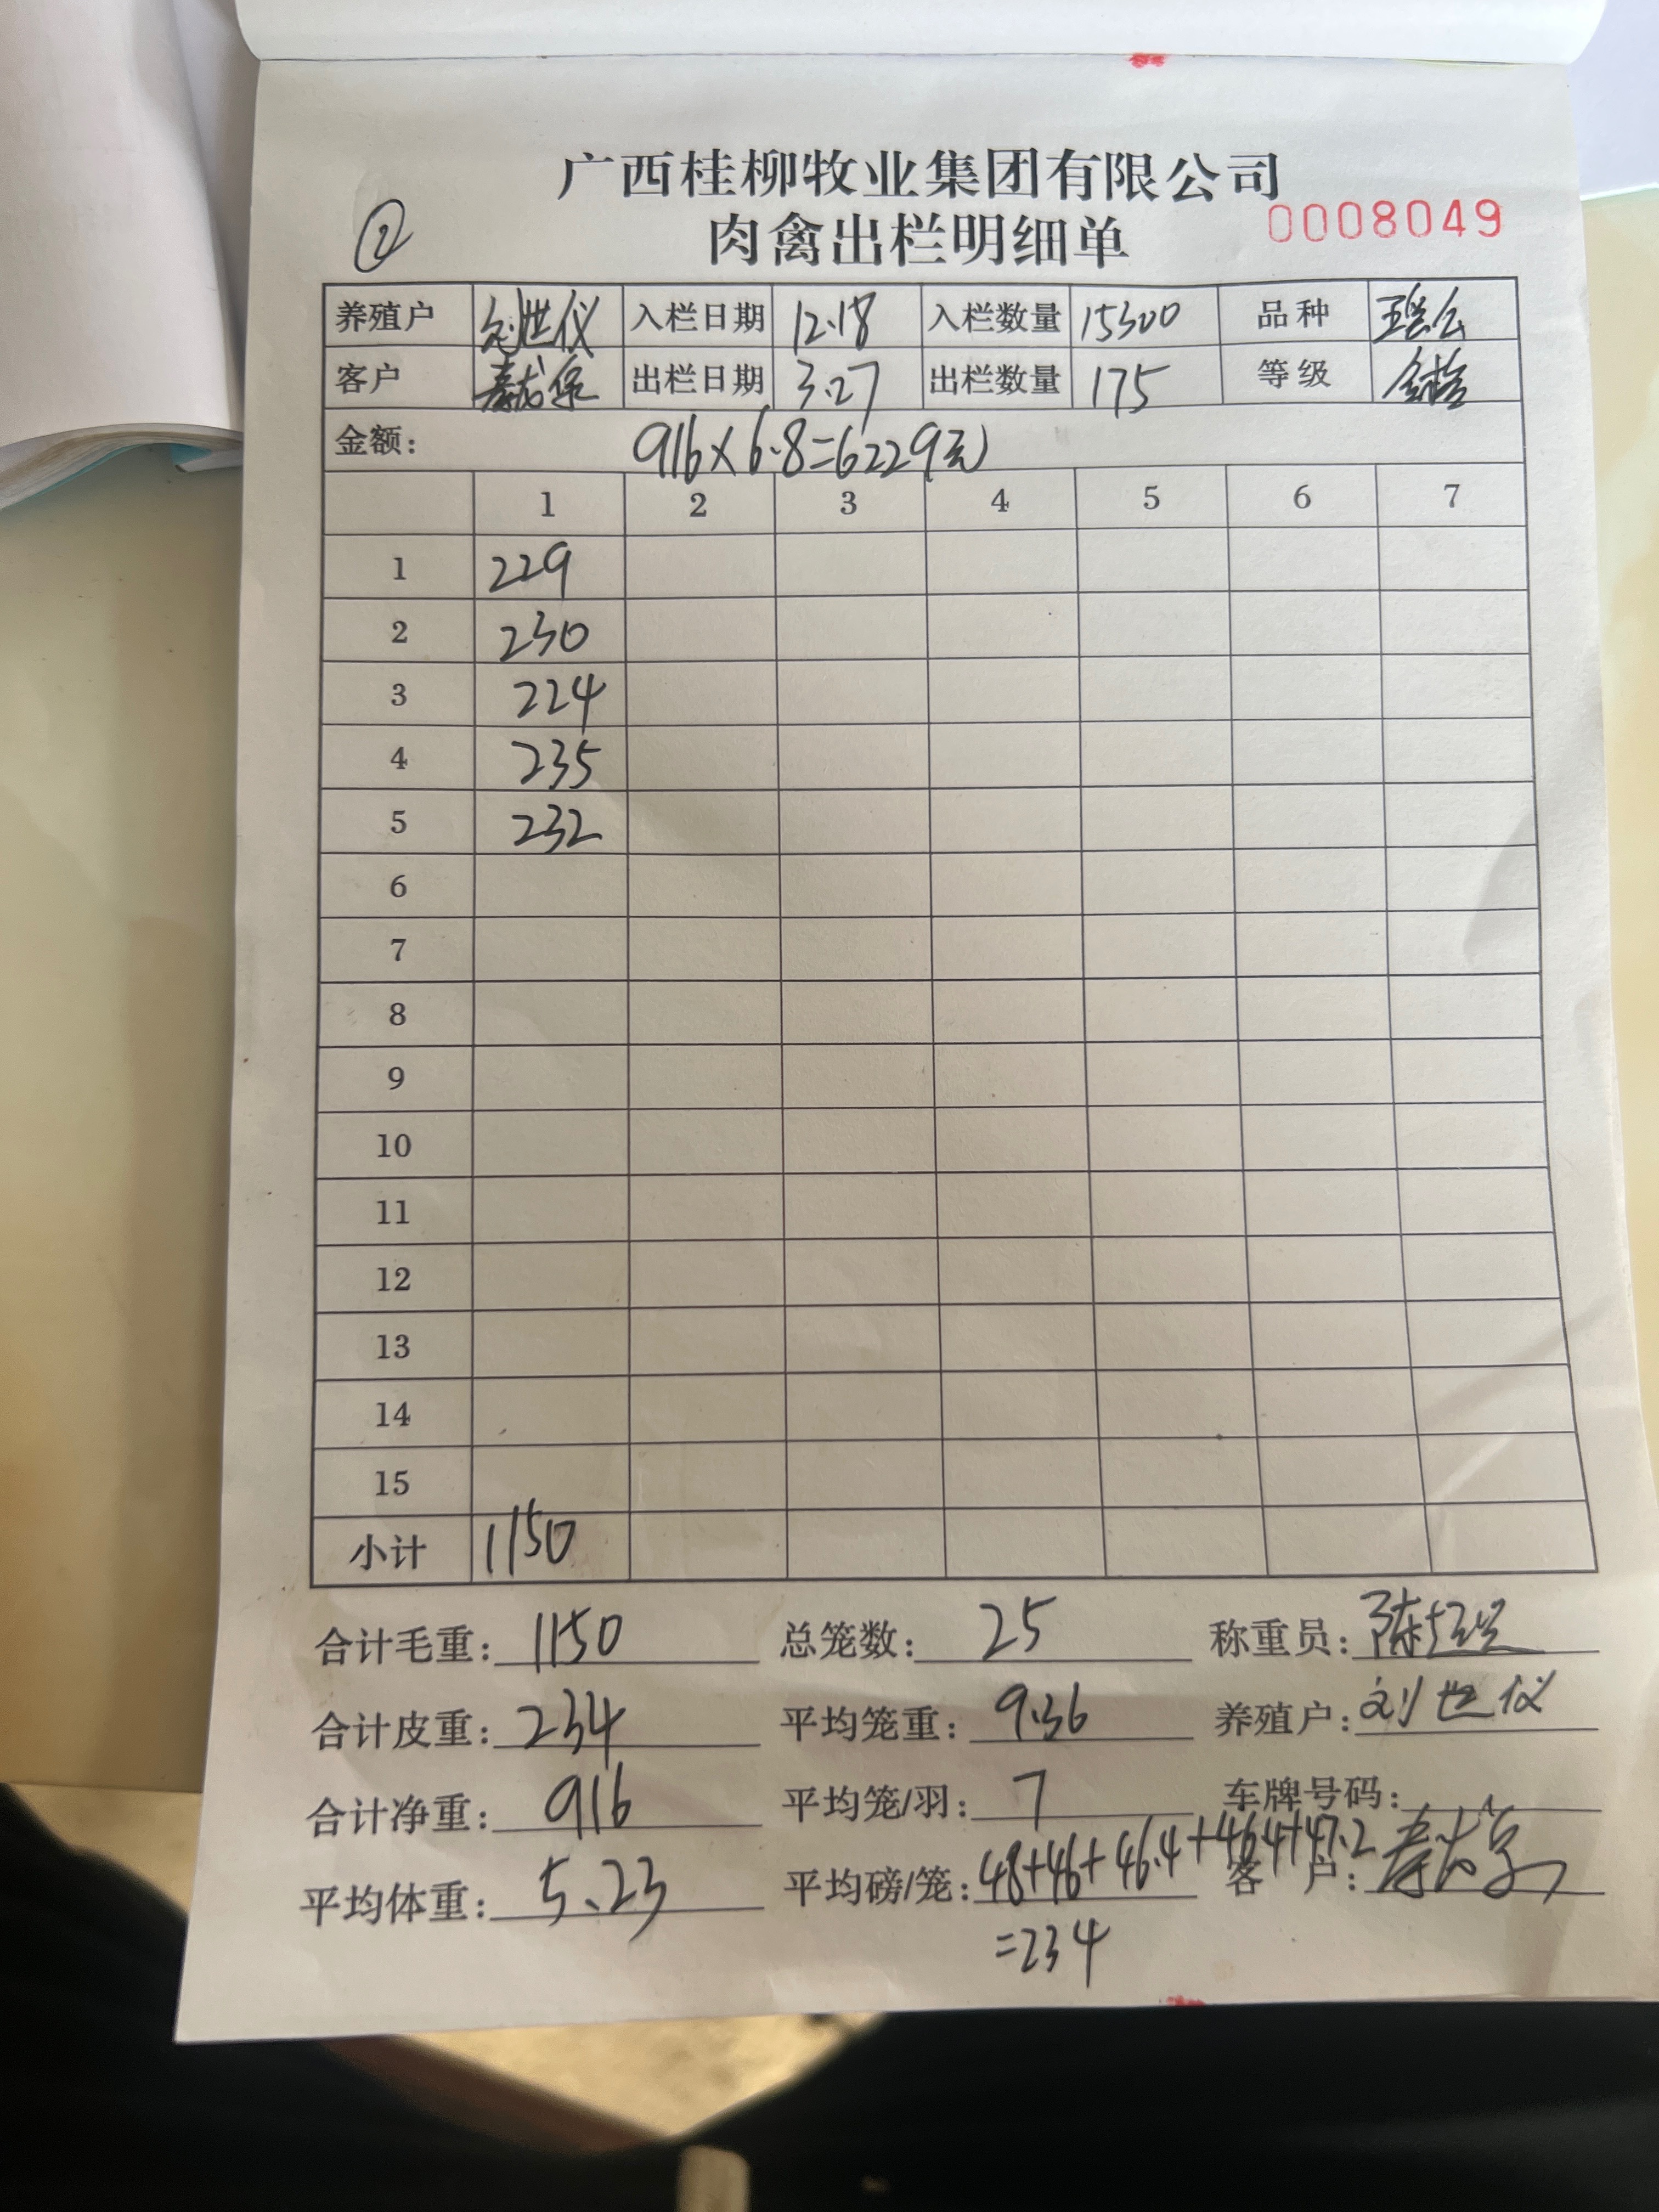 广西桂柳牧业集团有限公司
② 肉禽出栏明细单 0008049
养殖户 刘世仪 入栏日期 12.18 入栏数量 15300 品种
客户 出栏日期 3.27 出栏数量 175 等级
金额: 916×6.8=6229元
1 2 3 4 5 6 7
1 229
2 230
3 224
4 235
5 232
6
7
8
9
10
11
12
13
14
15
小计 1150
合计毛重: 1150 总笼数: 25 称重员: 陈
合计皮重: 234 平均笼重: 9.36 养殖户: 刘世仪
合计净重: 916 平均笼/羽: 7 车牌号码:
平均体重: 5.23 平均磅/笼: 48+46+46.4+46.4+47.2 客户:
=234